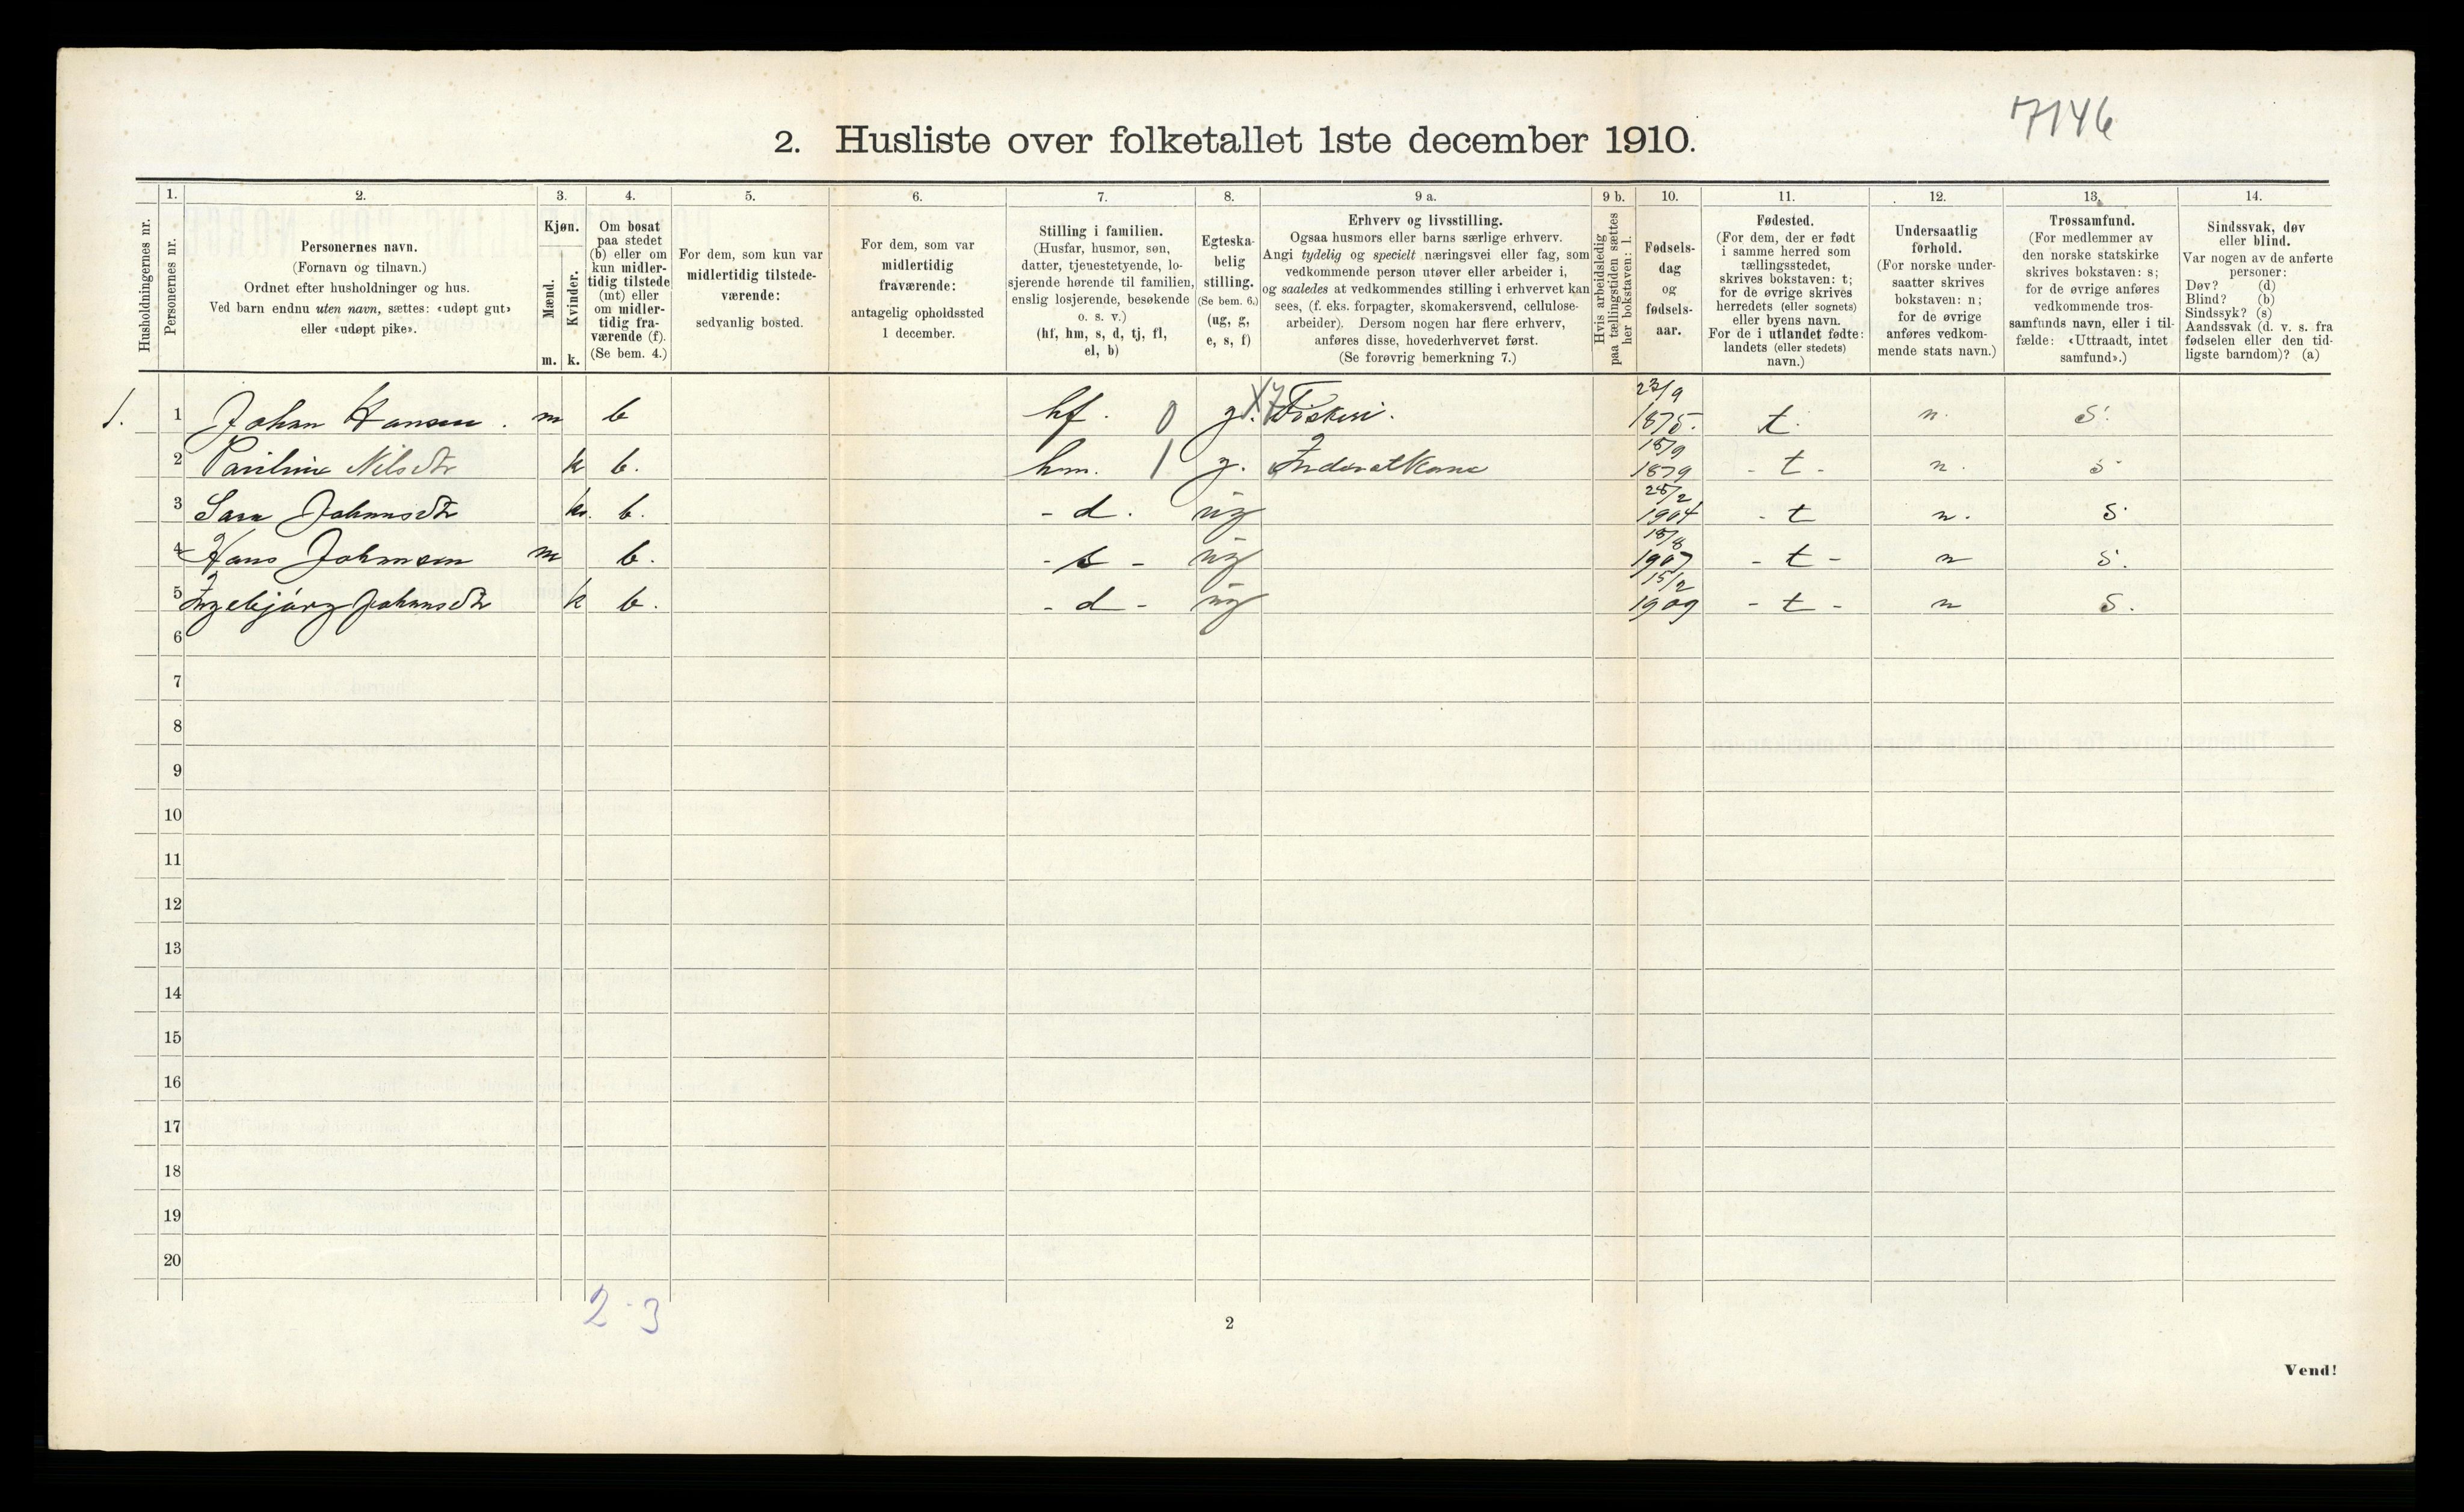 7146
2. Husliste over folketallet 1ste december 1910.
Husholdningernes nr.
1.
Personernes nr.
2.
Personernes navn.
(Fornavn og tilnavn.)
Ordnet efter husholdninger og hus.
Ved barn endnu uten navn, sættes: «udøpt gut»
eller «udøpt pike».
3.
Kjøn.
Mænd.
Kvinder.
m. k.
4.
Om bosat
paa stedet
(b) eller om
kun midler-
tidig tilstede
(mt) eller
om midler-
tidig fra-
værende (f).
(Se bem. 4.)
5.
For dem, som kun var
midlertidig tilstede-
værende:
sedvanlig bosted.
6.
For dem, som var
midlertidig
fraværende:
antagelig opholdssted
1 december.
7.
Stilling i familien.
(Husfar, husmor, søn,
datter, tjenestetyende, lo-
sjerende hørende til familien,
enslig losjerende, besøkende
o. s. v.)
(hf, hm, s, d, tj, fl,
el, b)
8.
Egteska-
belig
stilling.
(Se bem. 6.)
(ug, g,
e, s, f)
9 a.
Erhverv og livsstilling.
Ogsaa husmors eller barns særlige erhverv.
Angi tydelig og specielt næringsvei eller fag, som
vedkommende person utøver eller arbeider i,
og saaledes at vedkommendes stilling i erhvervet kan
sees, (f. eks. forpagter, skomakersvend, cellulose-
arbeider). Dersom nogen har flere erhverv,
anføres disse, hovederhvervet først.
(Se forøvrig bemerkning 7.)
9 b.
Hvis arbeidsledig
paa tællingstiden sættes
her bokstaven: l.
10.
Fødsels-
dag
og
fødsels-
aar.
11.
Fødested.
(For dem, der er født
i samme herred som
tællingsstedet,
skrives bokstaven: t;
for de øvrige skrives
herredets (eller sognets)
eller byens navn.
For de i utlandet fødte:
landets (eller stedets)
navn.)
12.
Undersaatlig
forhold.
(For norske under-
saatter skrives
bokstaven: n;
for de øvrige
anføres vedkom-
mende stats navn.)
13.
Trossamfund.
(For medlemmer av
den norske statskirke
skrives bokstaven: s;
for de øvrige anføres
vedkommende tros-
samfunds navn, eller i til-
fælde: «Uttraadt, intet
samfund».)
14.
Sindssvak, døv
eller blind.
Var nogen av de anførte
personer:
Døv? (d)
Blind? (b)
Sindssyk? (s)
Aandssvak (d. v. s. fra
fødselen eller den tid-
ligste barndom)? (a)
1. 1 Johan Hansen. m b hf. 0 g. X7 Fiskeri. 1875. t. n. s.
2 Pauline Nilsdtr k b. hm. 1 g. 1879 - t - n. s
3 Sara Johansdtr k. b. - d. ug 1904 - t n. s
4 Hans Johansen m b. - s - ug 1907 - t - n s.
5 Ingebjørg Johansdtr k b. - d - ug 15/2 1909 - t - n s.
6
7
8
9
10
11
12
13
14
15
16
17
18
19
20
2 - 3
2
Vend!